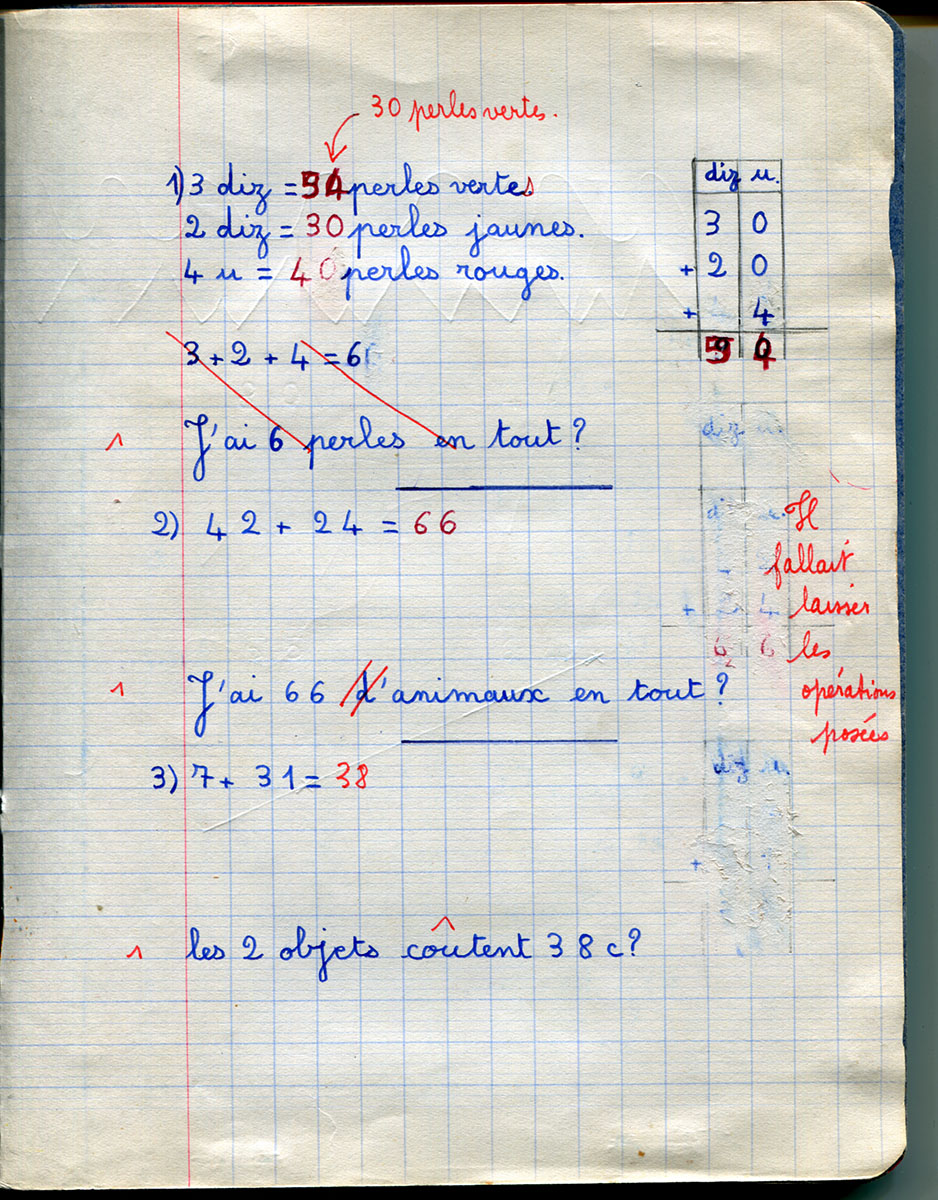 30 perles vertes.
1) 3 diz = 54 perles vertes
2 diz = 30 perles jaunes.
4 u = 40 perles rouges.
diz u.
3 0
+ 2 0
+ 4
3 + 2 + 4 = 6
1 J'ai 6 perles en tout ?
2) 42 + 24 = 66
diz u.
+ 4
6 6
Il
fallait
laisser
les
opérations
posées
1 J'ai 66 d'animaux en tout ?
3) 7 + 31 = 38
diz u.
+
1 les 2 objets coûtent 38 c ?